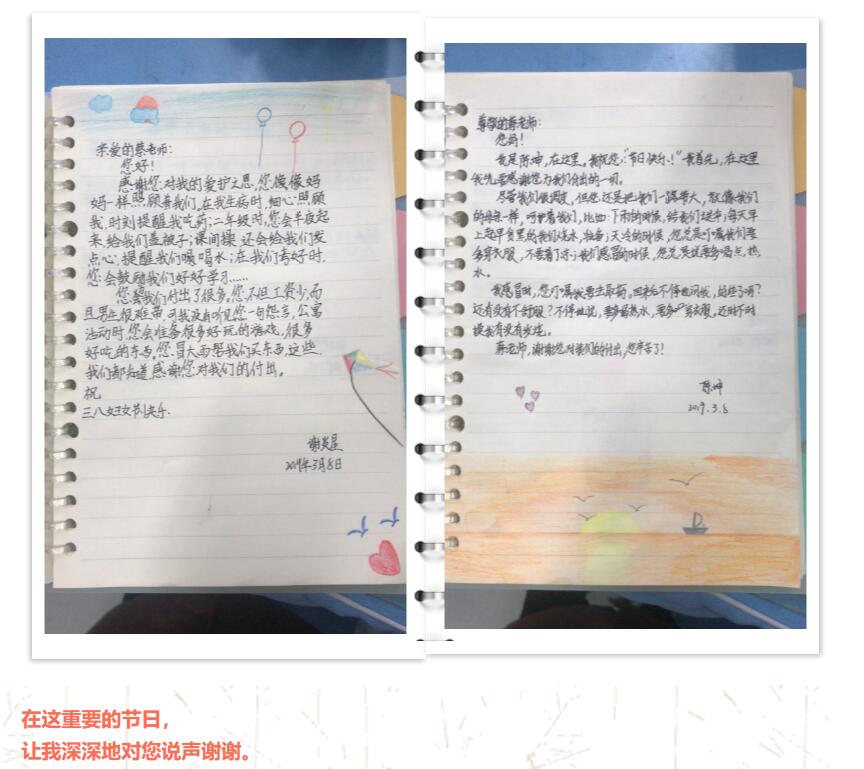 亲爱的蔡老师:
您好!
感谢您对我的爱护之恩,您像像妈
妈一样照顾着我们。在我生病时,细心照顾
我,时刻提醒我吃药;二年级时,您会半夜起
来,给我们盖被子;课间操,还会给我们发
点心,提醒我们喝水;在我们考好时,
您会鼓励我们好好学习……
您为我们付出了很多,您不但工资少,而
且男生很难带,可我没有听见您一句怨言,公寓
活动时,您会准备很多好玩的游戏,很多
好吃的东西。您冒大雨帮我们买东西,这些,
我们都知道,感谢您对我们的付出。
祝
三八妇女节快乐.
2019年3月8日
尊敬的蔡老师:
您好!
我是陈坤,在这里,我祝您:“节日快乐!”我首先,在这里
我先要感谢您为我们付出的一切。
尽管我们很调皮,但您还是把我们一路带大,就像我们
的母亲一样,呵护着我们,比如:下雨的时候,给我们送伞;每天早
上起早贪黑给我们烧水,准备;天冷的时候,您总是叮嘱我们要
多穿衣服,不要着了凉;我们感冒的时候,您总是说要多喝点,热
水。
我感冒时,您叮嘱我要去取药。回来后不停地问我,
还有没有不舒服?不停地说,要多喝热水,要多穿衣服,还时不时
摸我有没有发烧。
蔡老师,谢谢您对我们的付出,您辛苦了!
陈坤
2019.3.8
在这重要的节日,
让我深深地对您说声谢谢。